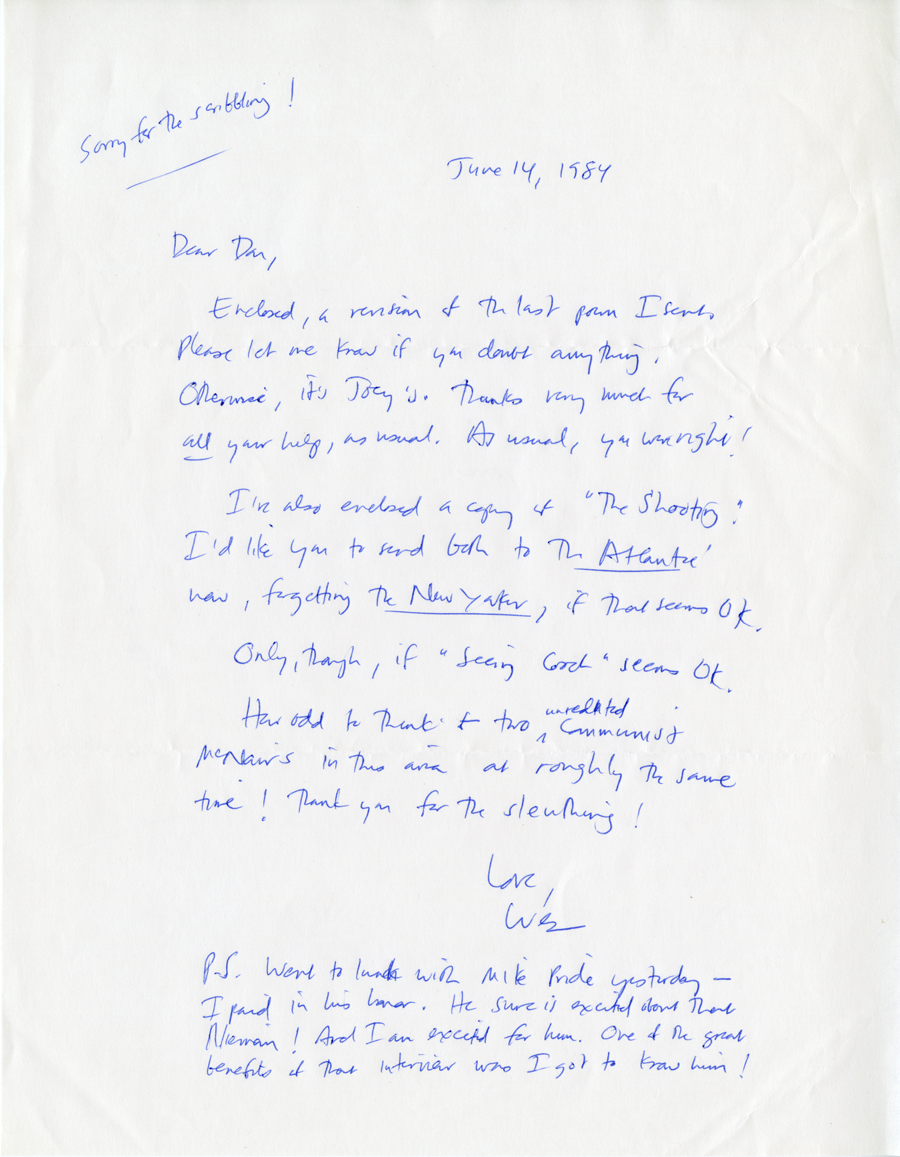 Sorry for the scribbling!
June 14, 1984
Dear Don,
Enclosed, a revision of the last poem I sent.
Please let me know if you doubt anything.
Otherwise, it's Joey's. Thanks very much for
all your help, as usual. As usual, you were right!
I've also enclosed a copy of "The Shooting".
I'd like you to send both to The Atlantic
now, forgetting the New Yorker, if that seems OK.
Only, though, if "Seeing " seems OK.
How odd to think of two unrelated Communist
McNairs in this area at roughly the same
time! Thank you for the sleuthing!
Love,
Wes
P.S. Went to lunch with Mike Pride yesterday —
I paid in his honor. He sure is excited about that
Nieman! And I am excited for him. One of the great
benefits of that interview was I got to know him!